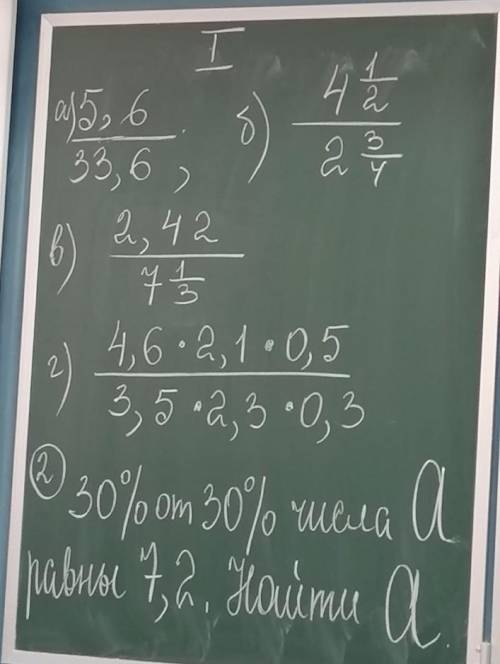 I
а) 5,6 / 33,6 ; б) 4 1/2 / 2 3/4
в) 2,42 / 7 1/3
г) 4,6 · 2,1 · 0,5 / 3,5 · 2,3 · 0,3
② 30% от 30% числа a
равны 7,2. Найти a.